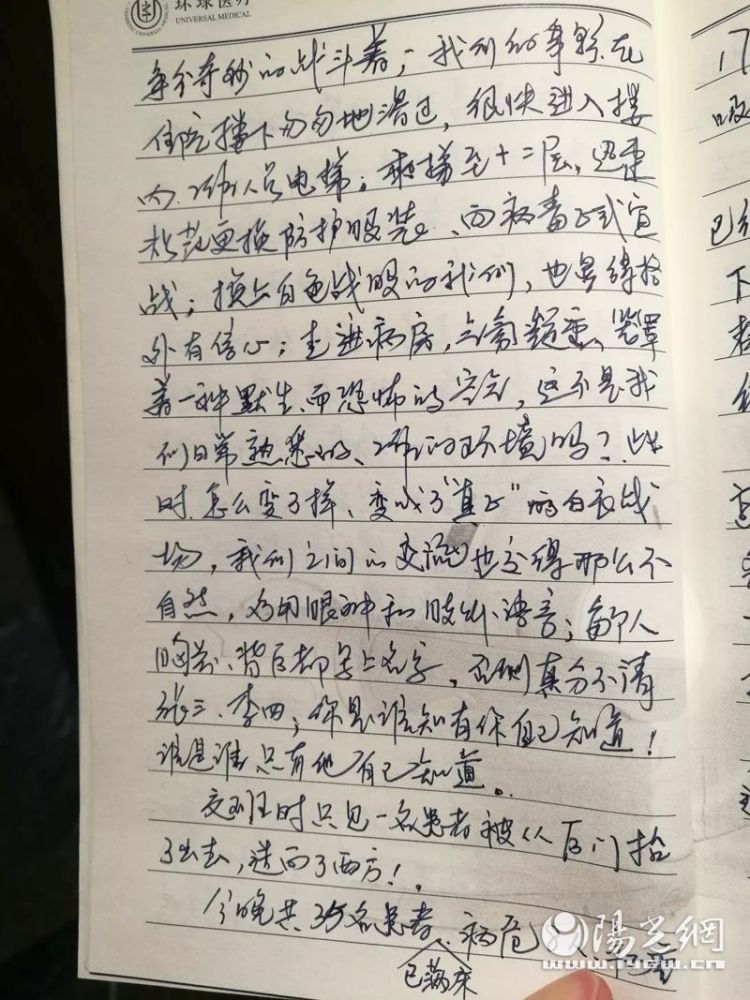 环球医疗
UNIVERSAL MEDICAL
争分夺秒的战斗着，我们的身影在
住院楼下匆匆地滑过，很快进入楼
内工作人员电梯；乘梯至十二层，迅速
更换防护服装、向病毒正式宣
战；换上白色战服的我们，也显得格
外有信心；走进病房，气氛凝重、笼罩
着一种默生而恐怖的，这不是我
们日常熟悉的、工作的环境吗？此
时怎么变了样、变成了"真正"的白衣战
场，我们之间的交流也变得那么不
自然，多用眼神和肢体语言；每个人
胸前、背后都写上名字，否则真分不清
张三、李四；你是谁知有你自己知道！
谁是谁只有他自己知道。
交班时只见一名患者被从后门抬
了出去，送向了西方！
今晚共35名患者、病危
已满床
陽光網
www.iyaw.cn
17
吸
下